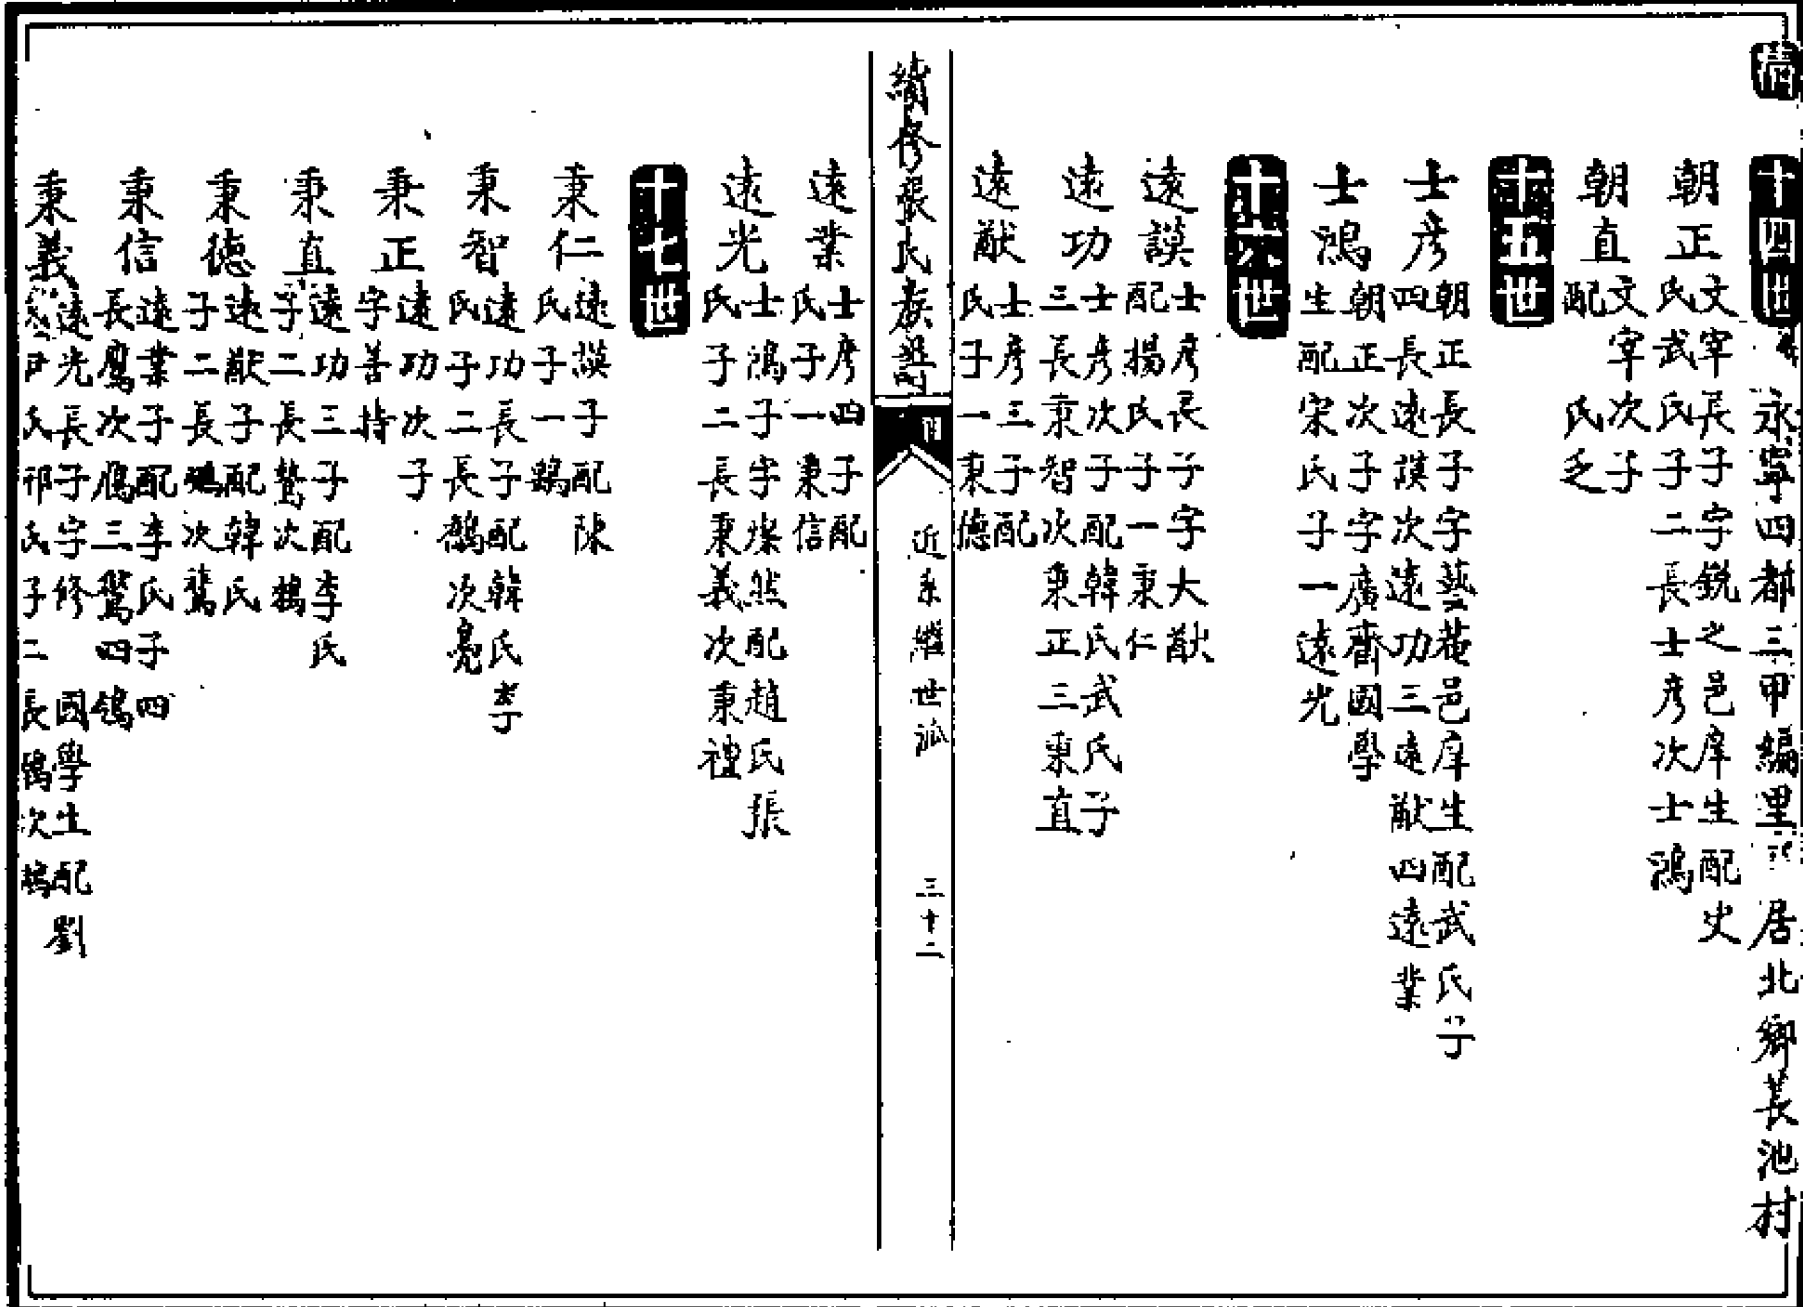 清
十四世 永寧四都三甲編里 居北鄉萇池村
朝正 文宰長子字銳之邑庠生配史
氏武氏子二長士彥次士鴻
朝直 文宰次子
配 氏乏
十五世
士彥 朝正長子字藝菴邑庠生配武氏子
四長遠謨次遠功三遠猷四遠業
士鴻 朝正次子字廣齋國學
生配宋氏子一遠光
十六世
遠謨 士彥長子字大猷
配楊氏子一秉仁
遠功 士彥次子配韓氏武氏子
三長秉智次秉正三秉直
遠猷 士彥三子配
氏子一秉德
續修張氏族譜
近系繼世派
三十二
遠業 士彥四子配
氏子一秉信
遠光 士鴻子字燦然配趙氏張
氏子二長秉義次秉禮
十七世
秉仁 遠謨子配陳
氏子一鵾
秉智 遠功長子配韓氏李
氏子二長鵲次亮
秉正 遠功次子
字善持
秉直 遠功三子配李氏
子二長鷔次鵝
秉德 遠猷子配韓氏
子二長 次鶩
秉信 遠業子配李氏子四
長鷹次鴈三鴛四鴿
秉義 遠光長子字修 國學生配劉
氏尹氏祁氏子二長 次